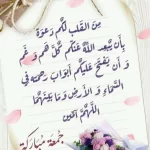 مِنَ القَلبِ لَكُم دَعوَة
بِأَن يُبعِدَ اللهُ عَنكُم كُلَّ هَمٍّ وَ غَمٍّ
وَ أَن يَفتَحَ عَلَيكُم أَبوَابَ رَحمَتِهِ فِي
السَّمَاءِ وَ الأَرضِ وَمَا بَينَهُمَا
اللَّهُمَّ آمِين
جُمعَة مُبَارَكَة